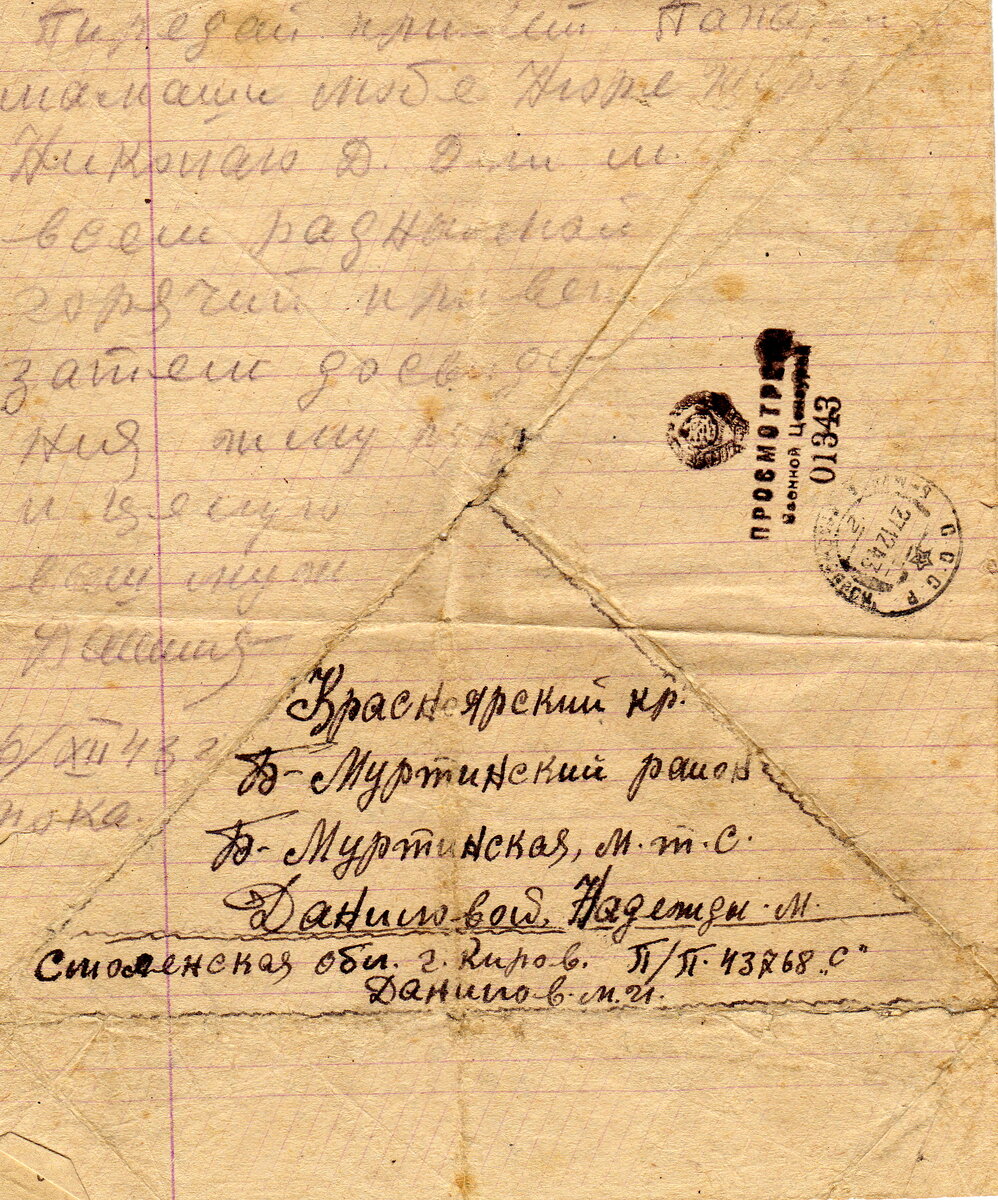 Пиредай привет Папа,
мамаши любе Нюре
Николаю Д. Э. м. и
всем радным мой
горячий привет
затем досвида
ния жму руку
и целую
ваш муж
6/XII 43 г
пока.
ПРОСМОТРЕНО
Военной Цензурой
01343
СССР
27 12 43
Красноярский кр.
Б-Муртинский район
Б-Муртинская, м.т.с.
Даниловой, Надежды. М.
Смоленская обл. г. Киров. П/П. 43768 „С"
Данилов. м. и.